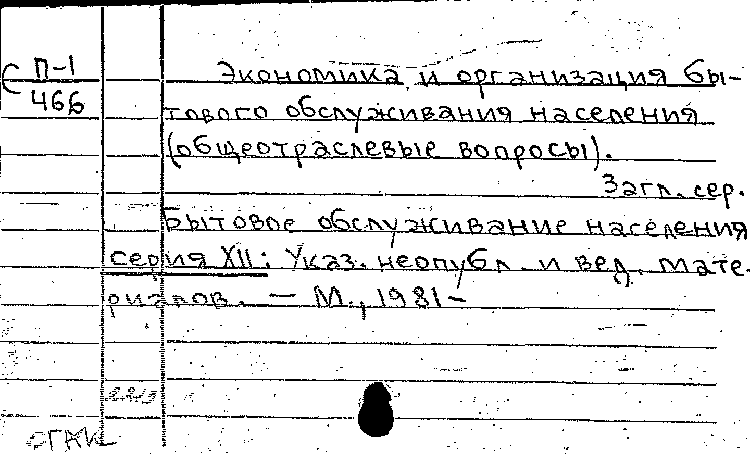 С П-1
466
Экономика и организация бы-
тового обслуживания населения
(общеотраслевые вопросы).
Загл. сер.
Бытовое обслуживание населения
серия XII: Указ. неопубл. и вед. мате-
риалов. — М., 1981-